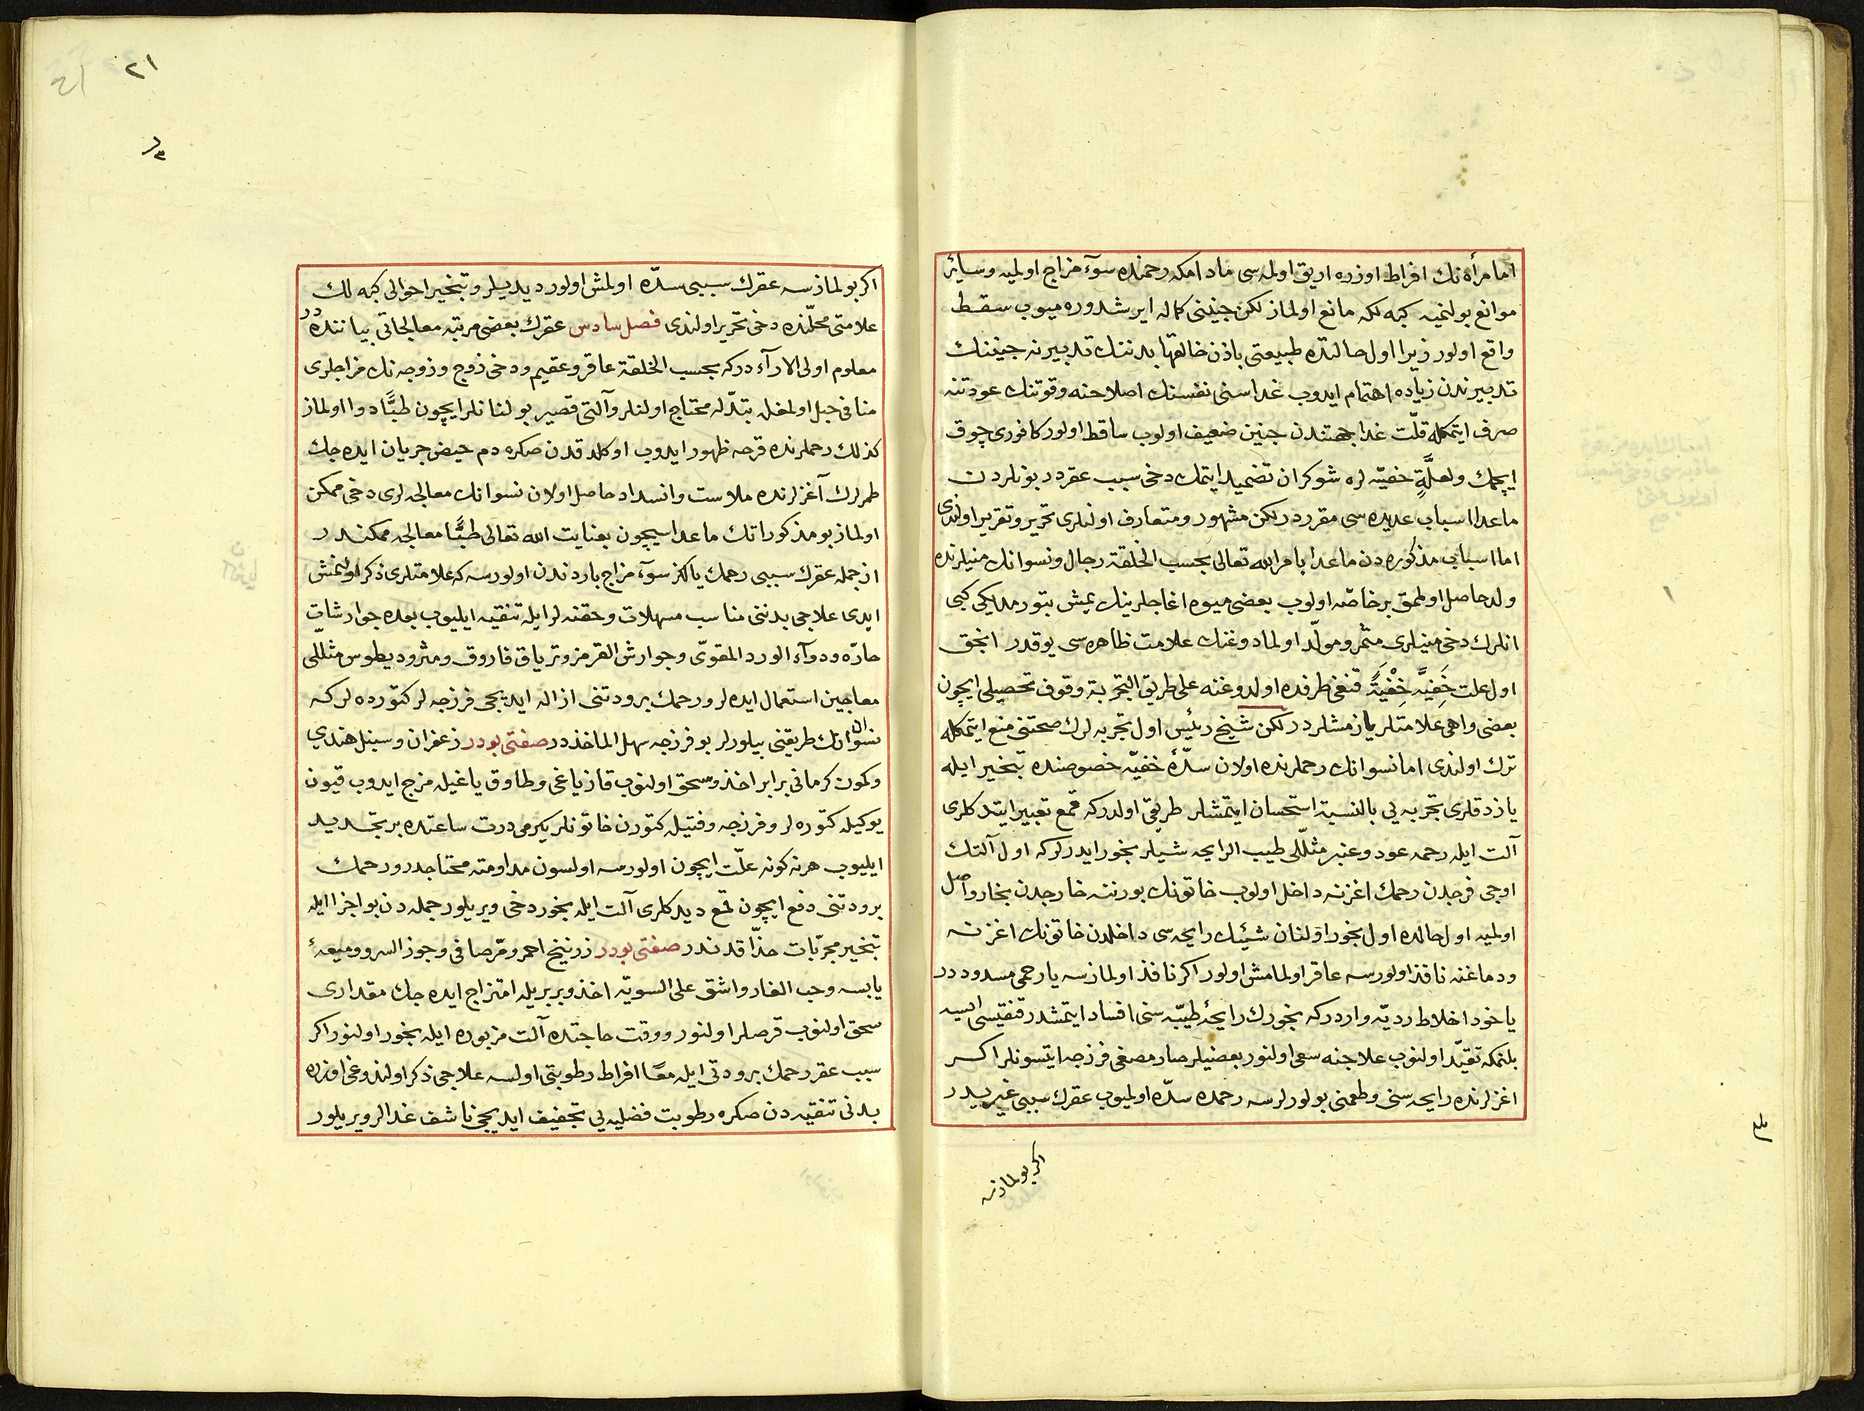 اما مرأه نك افراط اوزره اريق اولمه سى مادامكه رحمنده سوء مزاج اولميه وسائر
موانع بولنميه كبه لكه مانع اولماز لكن جنينى كماله ايرشدوره ميوب سقط
واقع اولور زيرا اول حالتده طبيعتى باذن خالقها بدننك تدبيرنه جنينك
تدبيرندن زياده اهتمام ايدوب غداسنى نفسنك اصلاحنه وقوتنك عودتنه
صرف ايتمكله قلّت غدا جهتندن جنين ضعيف اولوب ساقط اولور كافورى چوق
ايچمك ولعلّةٍ خفيّه لره شوكران تضميد ايتمك دخى سبب عقردر بونلردن
ماعدا اسباب عديده سى مقرردر لكن مشهور ومتعارف اولنلرى تحرير وتقرير اولندى
اما اسباب مذكوره دن ماعدا بامر الله تعالى بحسب الخلقة رجال ونسوانك منيلرنده
ولد حاصل اولمق بر خاصّه اولوب بعضى ميوه اغاجلرينك يمش بتورمديكى كبى
انلرك دخى منيلرى مثمر ومولّد اولمادوغنك علامت ظاهره سى يوقدر انجق
اول علت خَفِيَّه خِفْيَةً قنغى طرفده اولدوغنه على طريق التجربة وقوف تحصيلى ايچون
بعضى واهى علامتلر يازمشلردر لكن شيخ رئيس اول تجربه لرك صحتنى منع ايتمكله
ترك اولندى اما نسوانك رحملرنده اولان سدّۀ خفيّه خصوصنده تبخير ايله
يازدقلرى تجربه يى بالنسبة استحسان ايتمشلر طريقى اولدركه قمع تعبير ايتدكلرى
آلت ايله رحمه عود وعنبر مثللى طيب الرايحه شيلر بخور ايدرلركه اول آلتك
اوجى فرجدن رحمك اغزنه داخل اولوب خاتونك بورننه خارجدن بخار واصل
اولميه اول حالده اول بخور اولنان شيئك رايحه سى داخلدن خاتونك اغزنه
ودماغنه نافذ اولورسه عاقر اولمامش اولور اكر نافذ اولمازسه يا رحمى مسدوددر
ياخود اخلاط رديّه واردركه بخورك رايحۀ طيّبه سنى افساد ايتمشدر قنقيسى ايسه
بلنمكه تقيّد اولنوب علاجنه سعى اولنور بعضيلر صارمصغى فرزجه ايتسونلر اكر
اغزلرنده رايحه سنى وطعمنى بولورلرسه رحمده سدّه اولميوب عقرك سببى غيريدر
اكر بولمازسه
٢١
21
اكر بولمازسه عقرك سببى سدّه اولمش اولور ديديلر وتبخير احوالى كبه لك
علامتى محلّنده دخى تحرير اولندى فصل سادس عقرك بعضى مرتبه معالجاتى بياننده در
معلوم اولى الارآء دركه بحسب الخلقة عاقر وعقيم ودخى زوج وزوجه نك مزاجلرى
منافى حبل اولمغله تبدّله محتاج اولنلر وآلتى قصير بولنانلر ايچون طبًّا دوا اولماز
كذلك رحملرنده قرحه ظهور ايدوب اوكلدقدن صكره دم حيض جريان ايده جك
طمرلرك آغزلرنده ملاست وانسداد حاصل اولان نسوانك معالجه لرى دخى ممكن
اولماز بو مذكوراتك ماعداسيچون بعنايت الله تعالى طبًّا معالجه ممكندر
ازجمله عقرك سببى رحمك يالكز سوء مزاج باردندن اولورسه كه علامتلرى ذكر اولنمش
ايدى علاجى بدننى مناسب مسهلات وحقنه لر ايله تنقيه ايليوب بعده جوارشات
حارّه ودوآء الورد المقوّى وجوارش القرمز وترياق فاروق ومثروديطوس مثللى
معاجين استعمال ايده لر ورحمك برودتنى ازاله ايديجى فرزجه لر كتورده لركه
نسوانك طريقنى بيلورلر بو فرزجه سهل الماخذدر صفتى بودر زعفران وسنبل هندي
وكمون كرمانى برابر اخذ وسحق اولنوب قاز ياغى وطاوق ياغيله مزج ايدوب قيون
يوكيله كتوره لر وفرزجه وفتيله كتورن خاتونلر يكرمى درت ساعتده بر تجديد
ايليوب هر نه كونه علّت ايچون اولورسه اولسون مداومته محتاجدر ورحمك
برودتنى دفع ايچون قمع ديدكلرى آلت ايله بخور دخى ويريلور جمله دن بو اجزا ايله
تبخير مجرّبات حذّاقدندر صفتى بودر زرنيخ احمر ومرّ صافى وجوز السرو وميعۀ
يابسه وحب الغار واشق على السويّه اخذ وبربريله امتزاج ايده جك مقدارى
سحق اولنوب قرصلر اولنور ووقت حاجتده آلت مزبوره ايله بخور اولنور اكر
سبب عقر رحمك برودتى ايله معًا افراط رطوبتى اولسه علاجى ذكر اولندوغى اوزره
بدنى تنقيه دن صكره رطوبت فضليه يى تجفيف ايديجى ناشف غدالر ويريلور